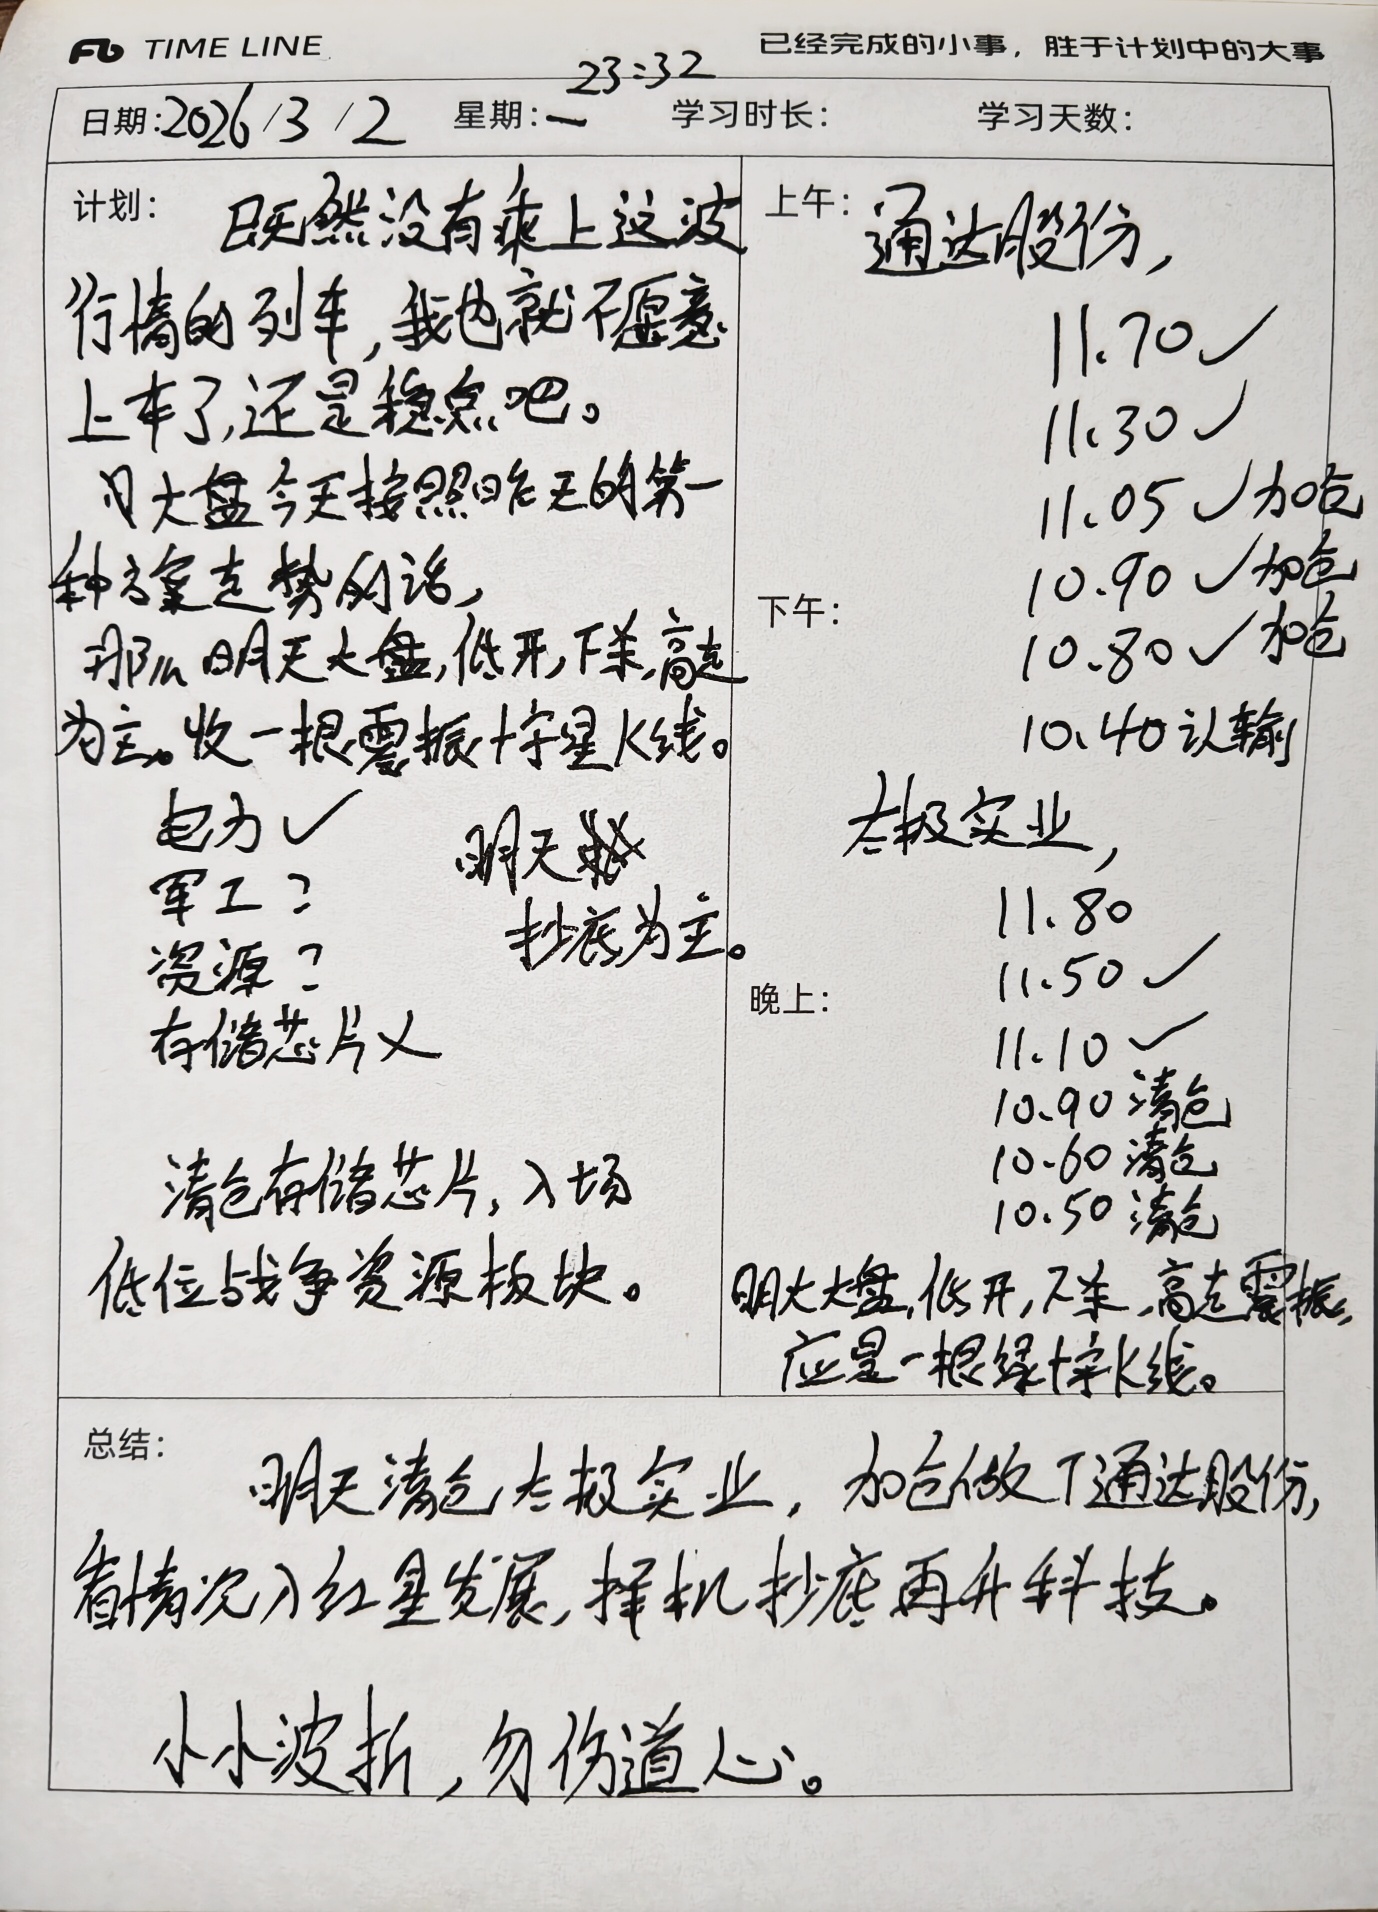 TIME LINE
已经完成的小事，胜于计划中的大事
23:32
日期:2026/3/2 星期:一 学习时长: 学习天数:
计划: 既然没有乘上这波
行情的列车,我也就不愿意
上车了,还是稳点吧。
大盘今天按照昨天的第一
种方案走势的话,
那么明天大盘,低开,下杀,高走
为主。收一根震振十字星K线。
电力✓
军工?
资源?
存储芯片×
明天
抄底为主。
清仓存储芯片,入场
低位战争资源板块。
上午: 通达股份,
11.70✓
11.30✓
11.05✓加仓
10.90✓加仓
下午:
10.80✓加仓
10.40认输
太极实业,
11.80
11.50✓
晚上:
11.10✓
10.90清仓
10.60清仓
10.50清仓
明大大盘,低开,下杀,高走震振,
应是一根绿十字K线。
总结: 明天清仓太极实业,加仓做T通达股份,
看情况入红星发展,择机抄底再升科技。
小小波折,勿伤道心。